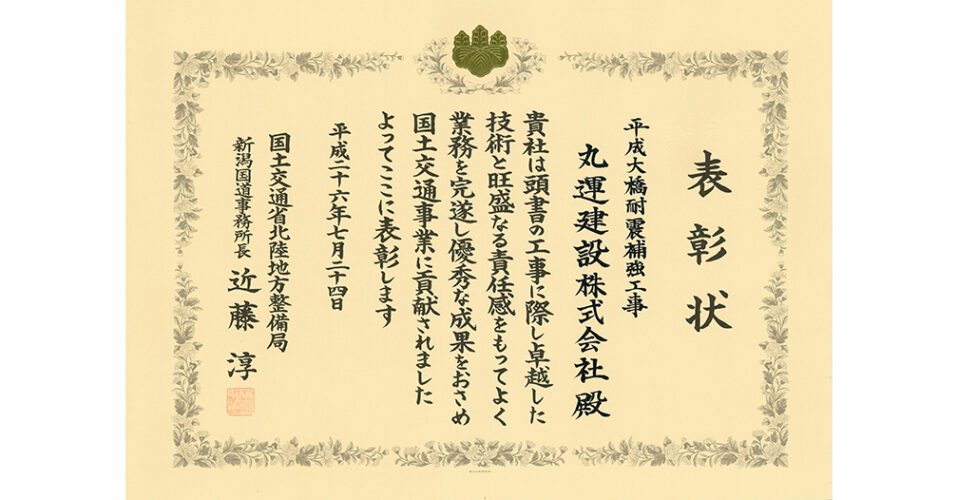 表彰状
平成大橋耐震補強工事
丸運建設株式会社殿
貴社は頭書の工事に際し卓越した
技術と旺盛なる責任感をもってよく
業務を完遂し優秀な成果をおさめ
国土交通事業に貢献されました
よってここに表彰します
平成二十六年七月二十四日
国土交通省北陸地方整備局
新潟国道事務所長 近藤淳